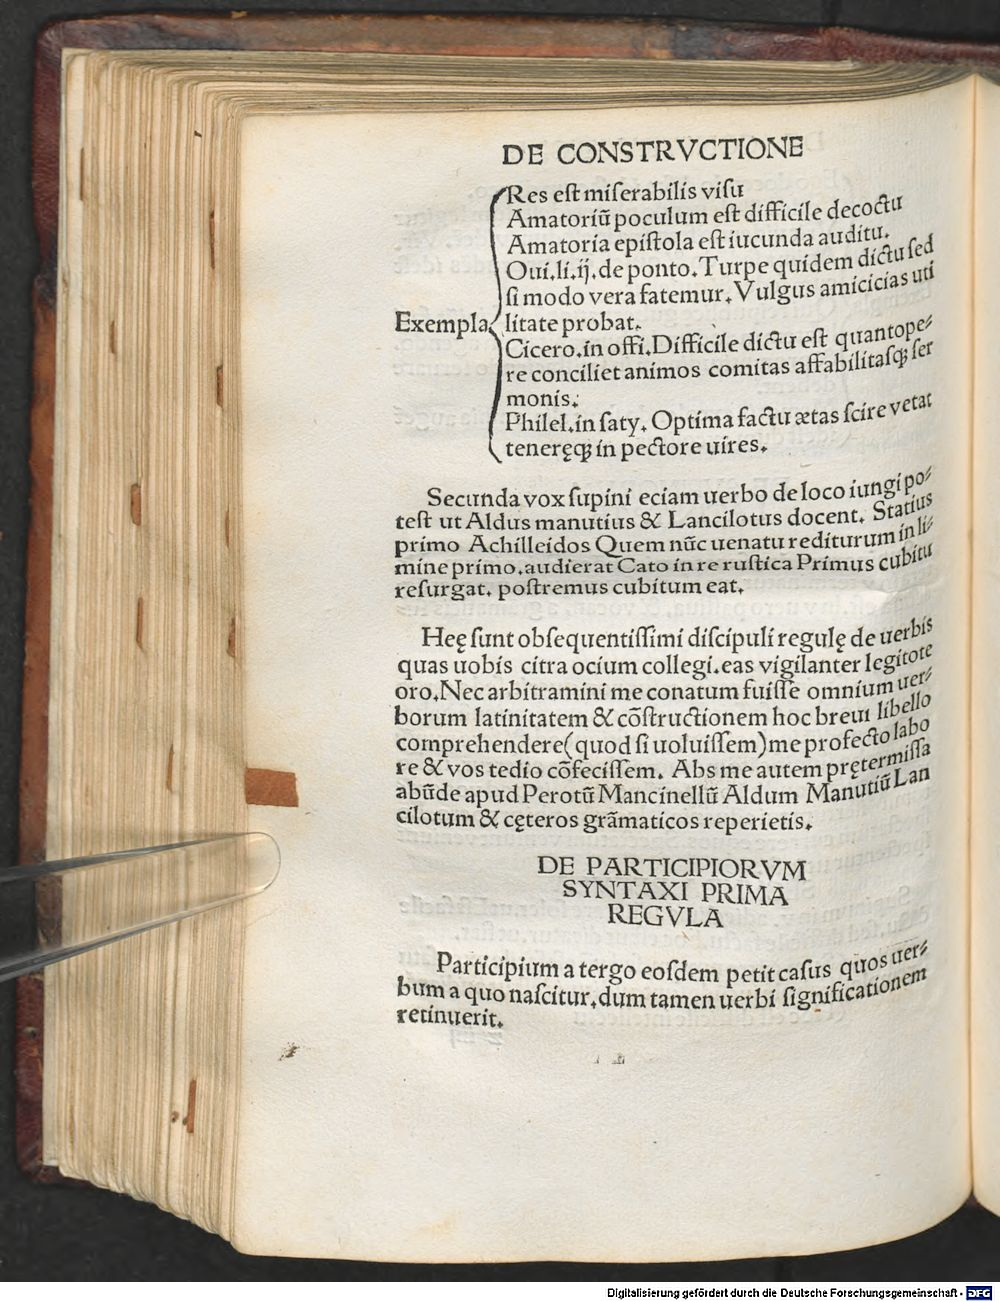 DE CONSTRVCTIONE
Res eſt miſerabilis viſu
Amatoriũ poculum eſt difficile decoctu
Amatoria epiſtola eſt iucunda auditu.
Oui.li.ij.de ponto.Turpe quidem dictu ſed
ſi modo vera fatemur.Vulgus amicicias uti
Exempla litate probat.
Cicero.in offi.Difficile dictu eſt quantope⸗
re conciliet animos comitas affabilitaſqꝫ ſer
monis.
Philel.in ſaty. Optima factu ætas ſcire vetat
teneręqꝫ in pectore uires.
Secunda vox ſupini eciam uerbo de loco iungi po⸗
teſt ut Aldus manutius & Lancilotus docent. Statius
primo Achilleidos Quem nũc uenatu rediturum in li⸗
mine primo.audierat Cato in re ruſtica Primus cubitu
reſurgat. poſtremus cubitum eat.
Heę ſunt obſequentiſſimi diſcipuli regulę de uerbis
quas uobis citra ocium collegi.eas vigilanter legitote
oro.Nec arbitramini me conatum fuiſſe omnium uer⸗
borum latinitatem & cõſtructionem hoc breui libello
comprehendere(quod ſi uoluiſſem)me profecto labo
re & vos tedio cõfeciſſem. Abs me autem prętermiſſa
abũde apud Perotũ Mancinellũ Aldum Manutiũ Lan
cilotum & cęteros grãmaticos reperietis.
DE PARTICIPIORVM
SYNTAXI PRIMA
REGVLA
Participium a tergo eoſdem petit caſus quos uer⸗
bum a quo naſcitur.dum tamen uerbi ſignificationem
retinuerit.
Digitalisierung gefördert durch die Deutsche Forschungsgemeinschaft - DFG